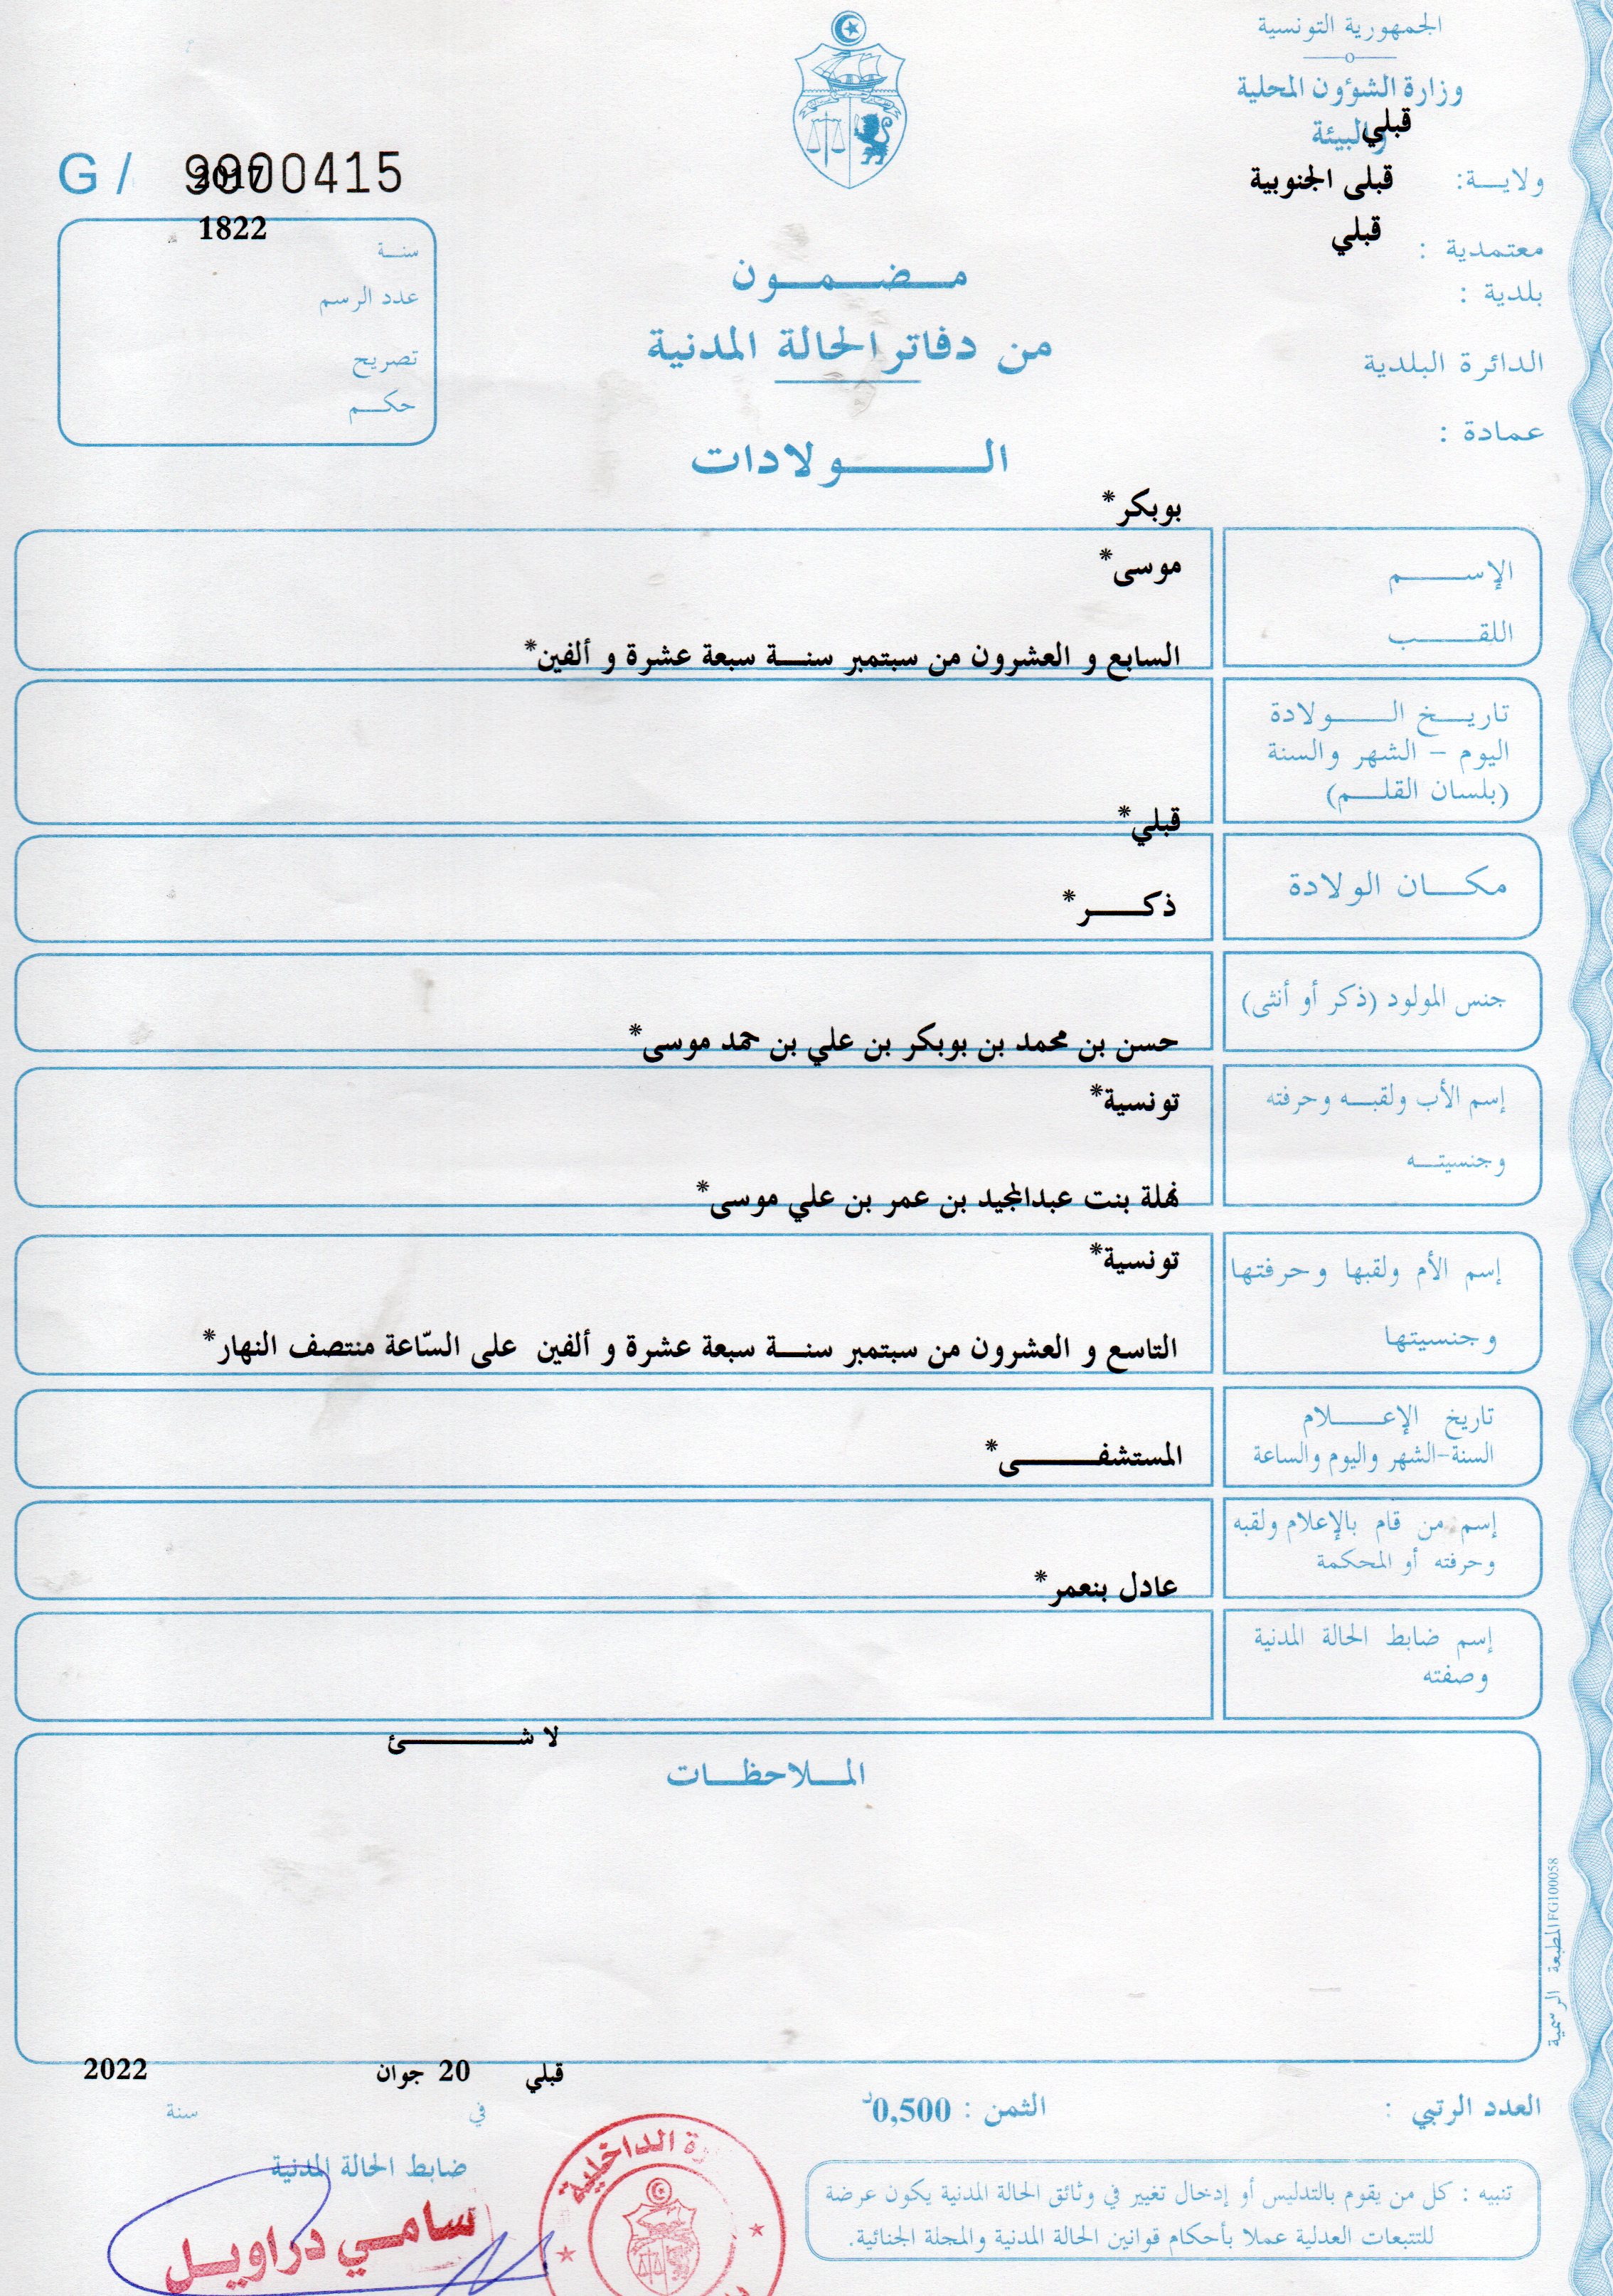 الجمهورية التونسية
وزارة الشؤون المحلية
والبيئة
قبلي
ولايـــة: قبلى الجنوبية
قبلي
معتمدية :
بلدية :
الدائرة البلدية
عمادة :
G / 9000415
2017
1822
سنــة
عدد الرسم
تصريح
حكــم
مـضـمـون
من دفاتر الحالة المدنية
الـــولادات
بوبكر*
الإســــم
موسى*
اللقــــب
السابع و العشرون من سبتمبر سنـــة سبعة عشرة و ألفين*
تاريــخ الــــولادة
اليوم – الشهر والسنة
(بلسان القلـــم)
قبلي*
مكـــان الولادة
ذكـــــر*
جنس المولود (ذكر أو أنثى)
حسن بن محمد بن بوبكر بن علي بن حمد موسى*
إسم الأب ولقبـــه وحرفته
تونسية*
وجنسيتـــه
نهلة بنت عبدالمجيد بن عمر بن علي موسى*
إسم الأم ولقبها وحرفتها
تونسية*
وجنسيتها
التاسع و العشرون من سبتمبر سنـــة سبعة عشرة و ألفين على السّاعة منتصف النهار*
تاريخ الإعــــلام
السنة-الشهر واليوم والساعة
المستشفـــــــى*
إسم من قام بالإعلام ولقبه
وحرفته أو المحكمة
عادل بنعمر*
إسم ضابط الحالة المدنية
وصفته
لا شـــــــئ
المـــلاحظـــات
المطبعة الرسمية FG100058
قبلي 20 جوان 2022
في سنة
العدد الرتبي :
الثمن : 0,500د
ضابط الحالة المدنية
سامي دراويل
الداخلية
تنبيه : كل من يقوم بالتدليس أو إدخال تغيير في وثائق الحالة المدنية يكون عرضة
للتتبعات العدلية عملا بأحكام قوانين الحالة المدنية والمجلة الجنائية.